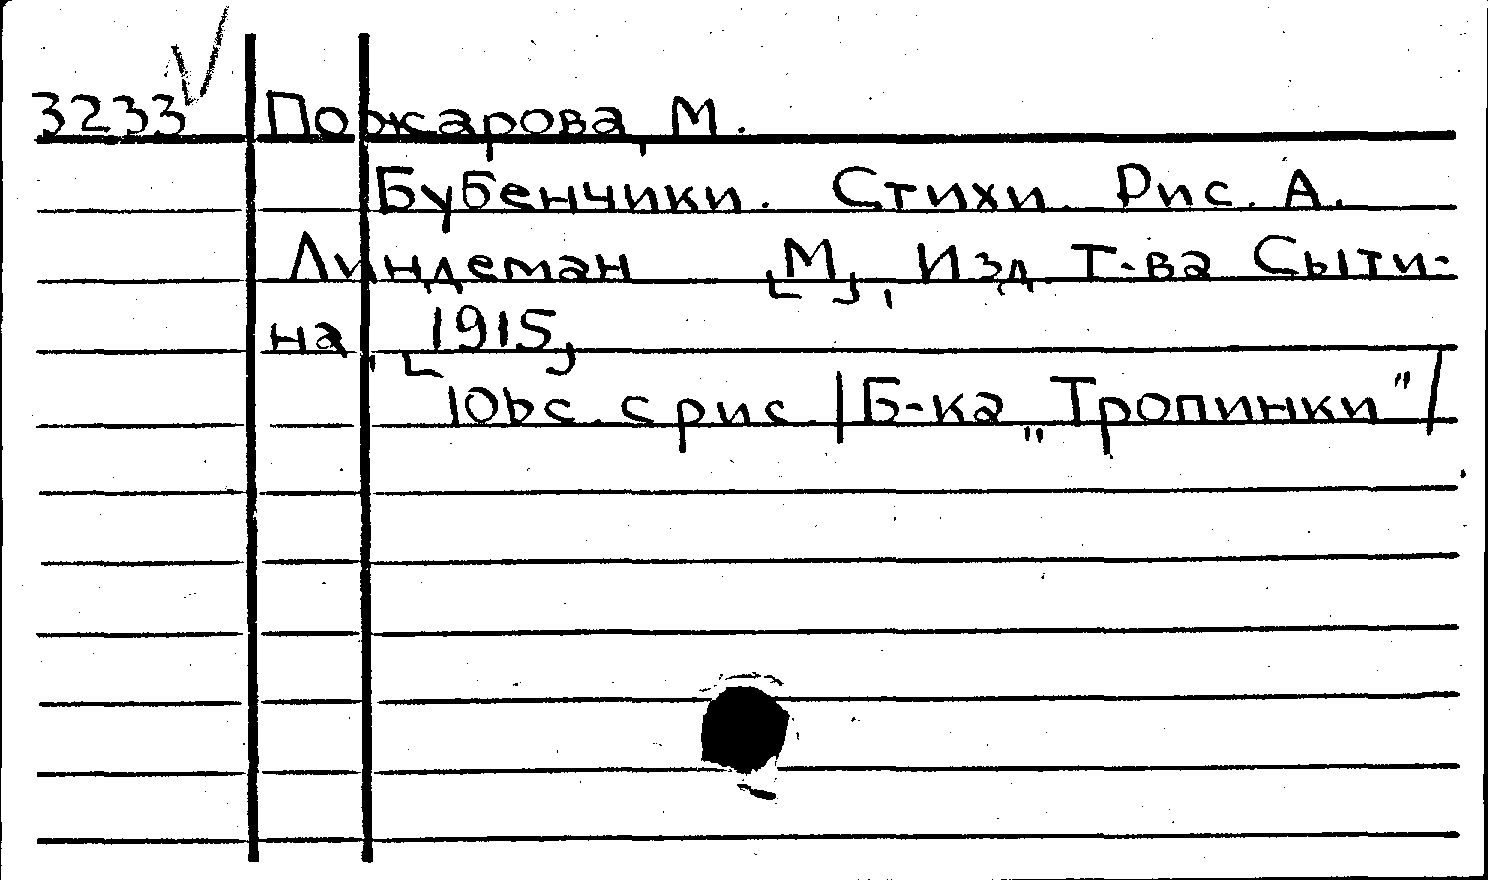 3233 Пожарова, М.
Бубенчики. Стихи. Рис. А.
Линдеман [М], Изд. Т-ва Сыти-
на, [1915]
106 с. с рис. |Б-ка „Тропинки"|